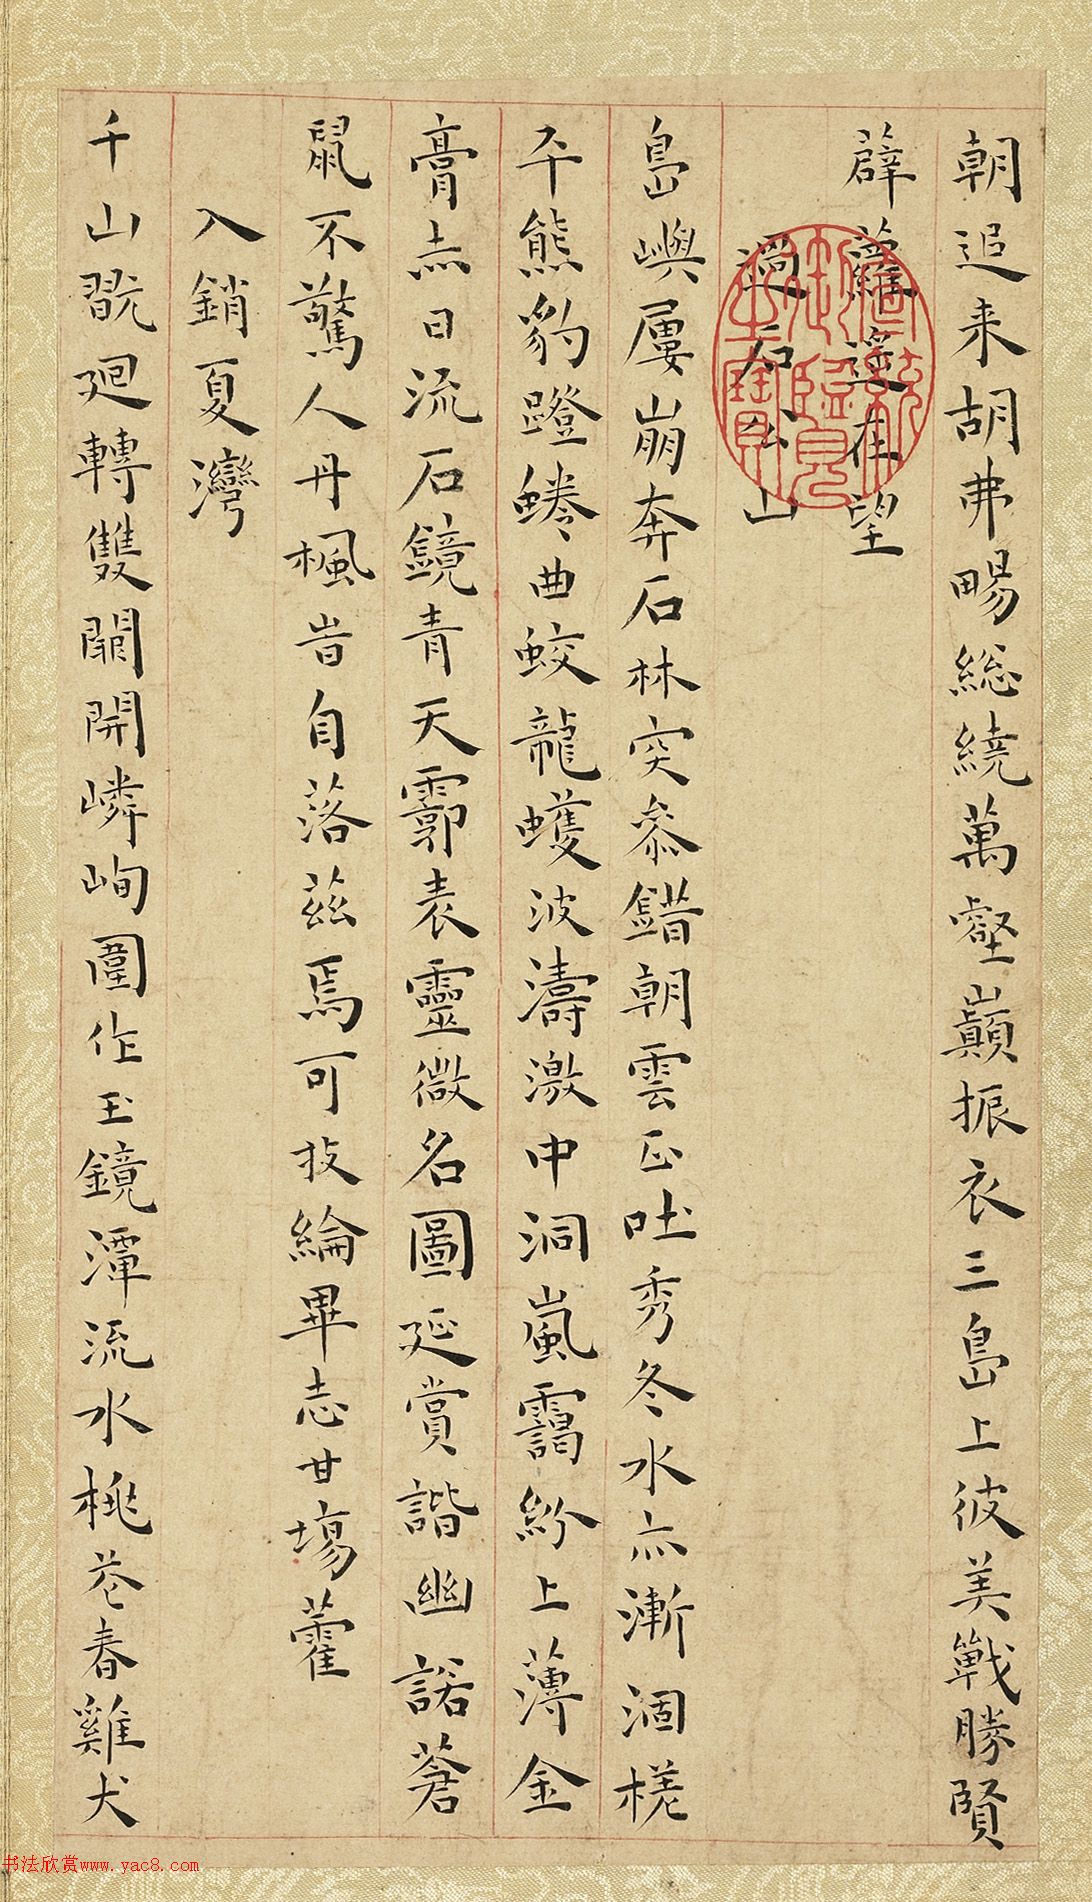 朝追來胡弗暘總繞萬壑巔振衣三島上彼美戰勝賢
薜蘿遥在望
過石公山
島嶼屢崩奔石林突叅錯朝雲正吐秀冬水亦漸涸槎
牙熊豹蹬蜷曲蛟龍蠖波濤激中洞嵐靄紛上薄金
膏赤日流石鏡青天霩表靈微名圖延賞諧幽諾蒼
鼠不驚人丹楓皆自落茲焉可投綸畢志甘場藿
入銷夏灣
千山翫廻轉雙闕開嶙峋圍作玉鏡潭流水桃花春雞犬
書法欣赏www.yac8.com